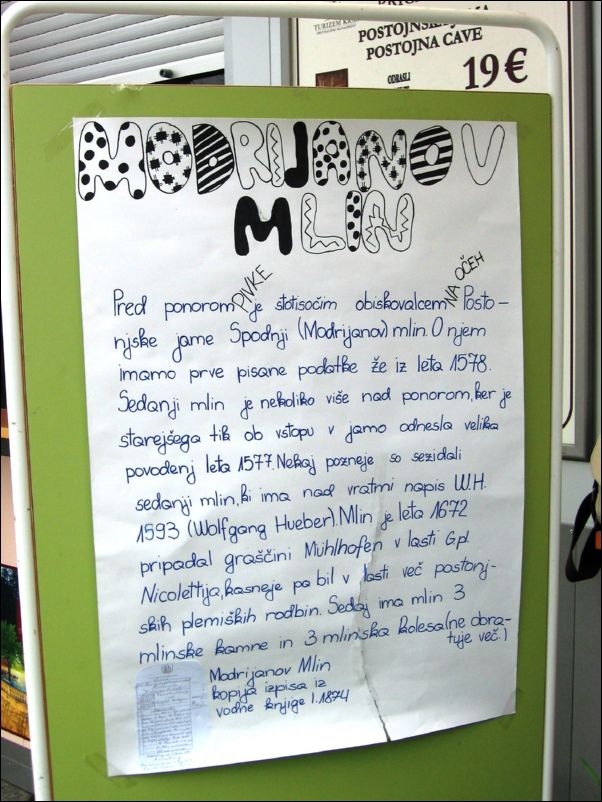 TURIZEM KRAS
POSTOJNSKA JAMA
POSTOJNA CAVE
ODRASLI
19 €
MODRIJANOV
MLIN
Pred ponorom PIVKE je stotisočim obiskovalcem NA OČEH Posto-
njske jame Spodnji (Modrijanov) mlin. O njem
imamo prve pisane podatke že iz leta 1578.
Sedanji mlin je nekoliko više nad ponorom, ker je
starejšega tik ob vstopu v jamo odnesla velika
povodenj leta 1577. Nekaj pozneje so sezidali
sedanji mlin, ki ima nad vratmi napis W.H.
1593 (Wolfgang Hueber). Mlin je leta 1672
pripadal graščini Mühlhofen v lasti Gpl.
Nicolettija, kasneje pa bil v lasti več postonj-
skih plemiških rodbin. Sedaj ima mlin 3
mlinske kamne in 3 mlinska kolesa (ne obra-
tuje več.)
Modrijanov Mlin
kopija izpisa iz
vodne knjige l. 1874